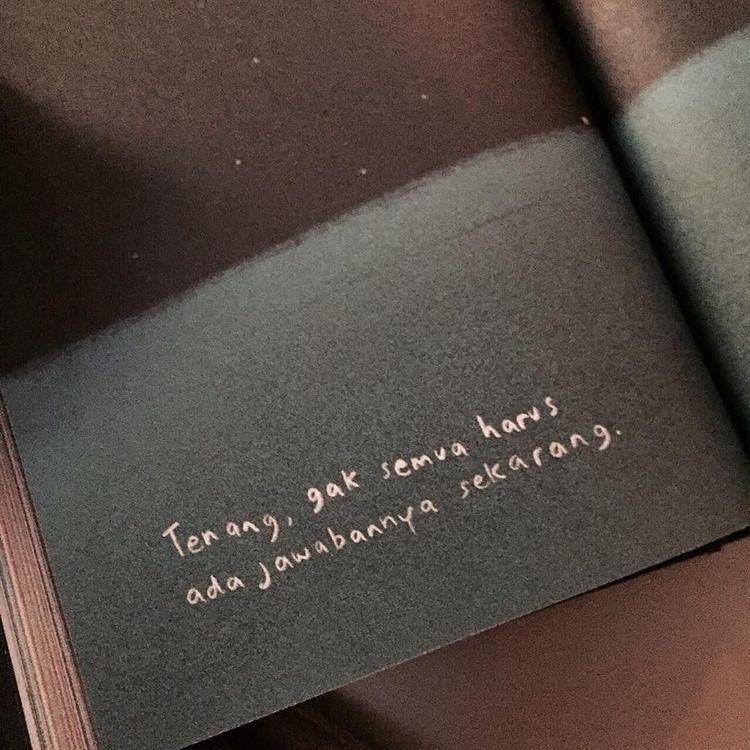 Tenang, gak semua harus
ada jawabannya sekarang.